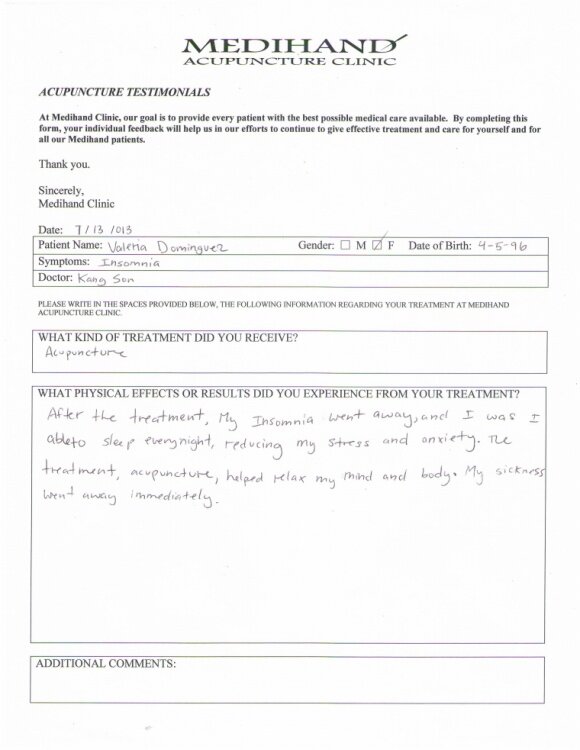 MEDIHAND
ACUPUNCTURE CLINIC
ACUPUNCTURE TESTIMONIALS
At Medihand Clinic, our goal is to provide every patient with the best possible medical care available. By completing this
form, your individual feedback will help us in our efforts to continue to give effective treatment and care for yourself and for
all our Medihand patients.
Thank you.
Sincerely,
Medihand Clinic
Date: 7/13/013
Patient Name: Valeria Dominguez Gender: ☐ M ☑ F Date of Birth: 4-5-96
Symptoms: Insomnia
Doctor: Kang Son
PLEASE WRITE IN THE SPACES PROVIDED BELOW, THE FOLLOWING INFORMATION REGARDING YOUR TREATMENT AT MEDIHAND
ACUPUNCTURE CLINIC.
WHAT KIND OF TREATMENT DID YOU RECEIVE?
Acupuncture
WHAT PHYSICAL EFFECTS OR RESULTS DID YOU EXPERIENCE FROM YOUR TREATMENT?
After the treatment, My Insomnia went away, and I was I
able to sleep everynight, reducing my stress and anxiety. The
treatment, acupuncture, helped relax my mind and body. My sickness
went away immediately.
ADDITIONAL COMMENTS: